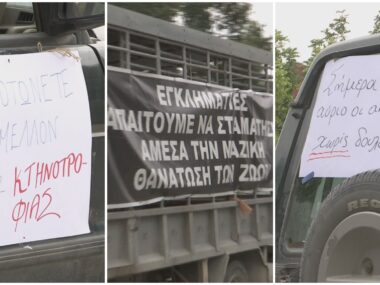 ΟΤΩΝΕΤΕ
ΜΕΛΛΟΝ
ΚΤΗΝΟΤΡΟ-
ΦΙΑΣ
ΕΓΚΛΗΜΑΤΙΕΣ
ΑΠΑΙΤΟΥΜΕ ΝΑ ΣΤΑΜΑΤΗΣ
ΑΜΕΣΑ ΤΗΝ ΝΑΖΙΚΗ
ΘΑΝΑΤΩΣΗ ΤΩΝ ΖΩΩ
Σήμερα
αύριο οι α
χωρίς δου
REC